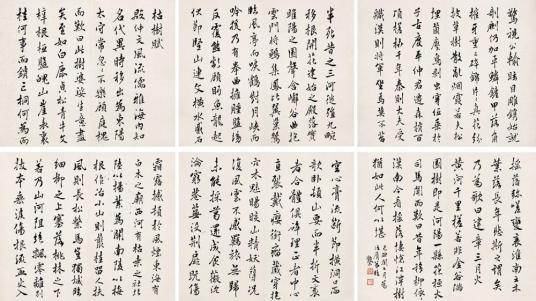 枯樹賦
殷仲文風流儒雅海內知
名代異時移出為東陽
太守常忽忽不樂顧庭槐
而歎曰此樹婆娑生意盡
矣至如白鹿貞松青牛文
梓根柢盤魄山崖表裏
桂何事而銷亡桐何為而
半死昔之三河徙殖九畹
移根開花建始之殿落實
睢陽之園聲含嶰谷曲抱
雲門將雛集鳳比翼巢鴛
臨風亭而唳鶴對月峽而
吟猿乃有拳曲擁腫盤坳
反覆熊彪顧盼魚龍起
伏節豎山連文橫水匠石
驚視公輸眩目雕鐫始就
剞劂仍加平鱗鏟甲落角
摧牙重重碎錦片片真花紛
披草樹散亂煙霞若夫松
子古度平仲君遷森梢百
頃槎枿千年秦則大夫受
職漢則將軍坐焉莫不苔
埋菌壓鳥剝蟲穿
霜露撼頓於風煙東海有
白木之廟西河有枯桑之社北
陸以楊葉為關南陵以梅
根作冶小山則叢桂留人扶
風則長松繫馬豈獨城臨
細柳之上塞落桃林之下
若乃山河阻絕飄零離別
拔本垂淚傷根瀝血火入
空心膏流斷節橫洞口而
欹臥頓山腰而半折文袤
者合體俱碎理正者中心
直裂戴癭銜瘤藏穿抱
穴木魅睒睗山精妖孽況
復風雲不感羈旅無歸
未能採葛還成食薇沈
淪窮巷蕪沒荊扉既傷
搖落彌嗟變衰淮南子云木
葉落長年悲斯之謂矣
乃為歌曰建章三月火
黃河千里槎若非金谷滿
園樹即是河陽一縣花桓大
司馬聞而歎曰昔年移柳依依
漢南今看搖落悽愴江潭樹
猶如此人何以堪